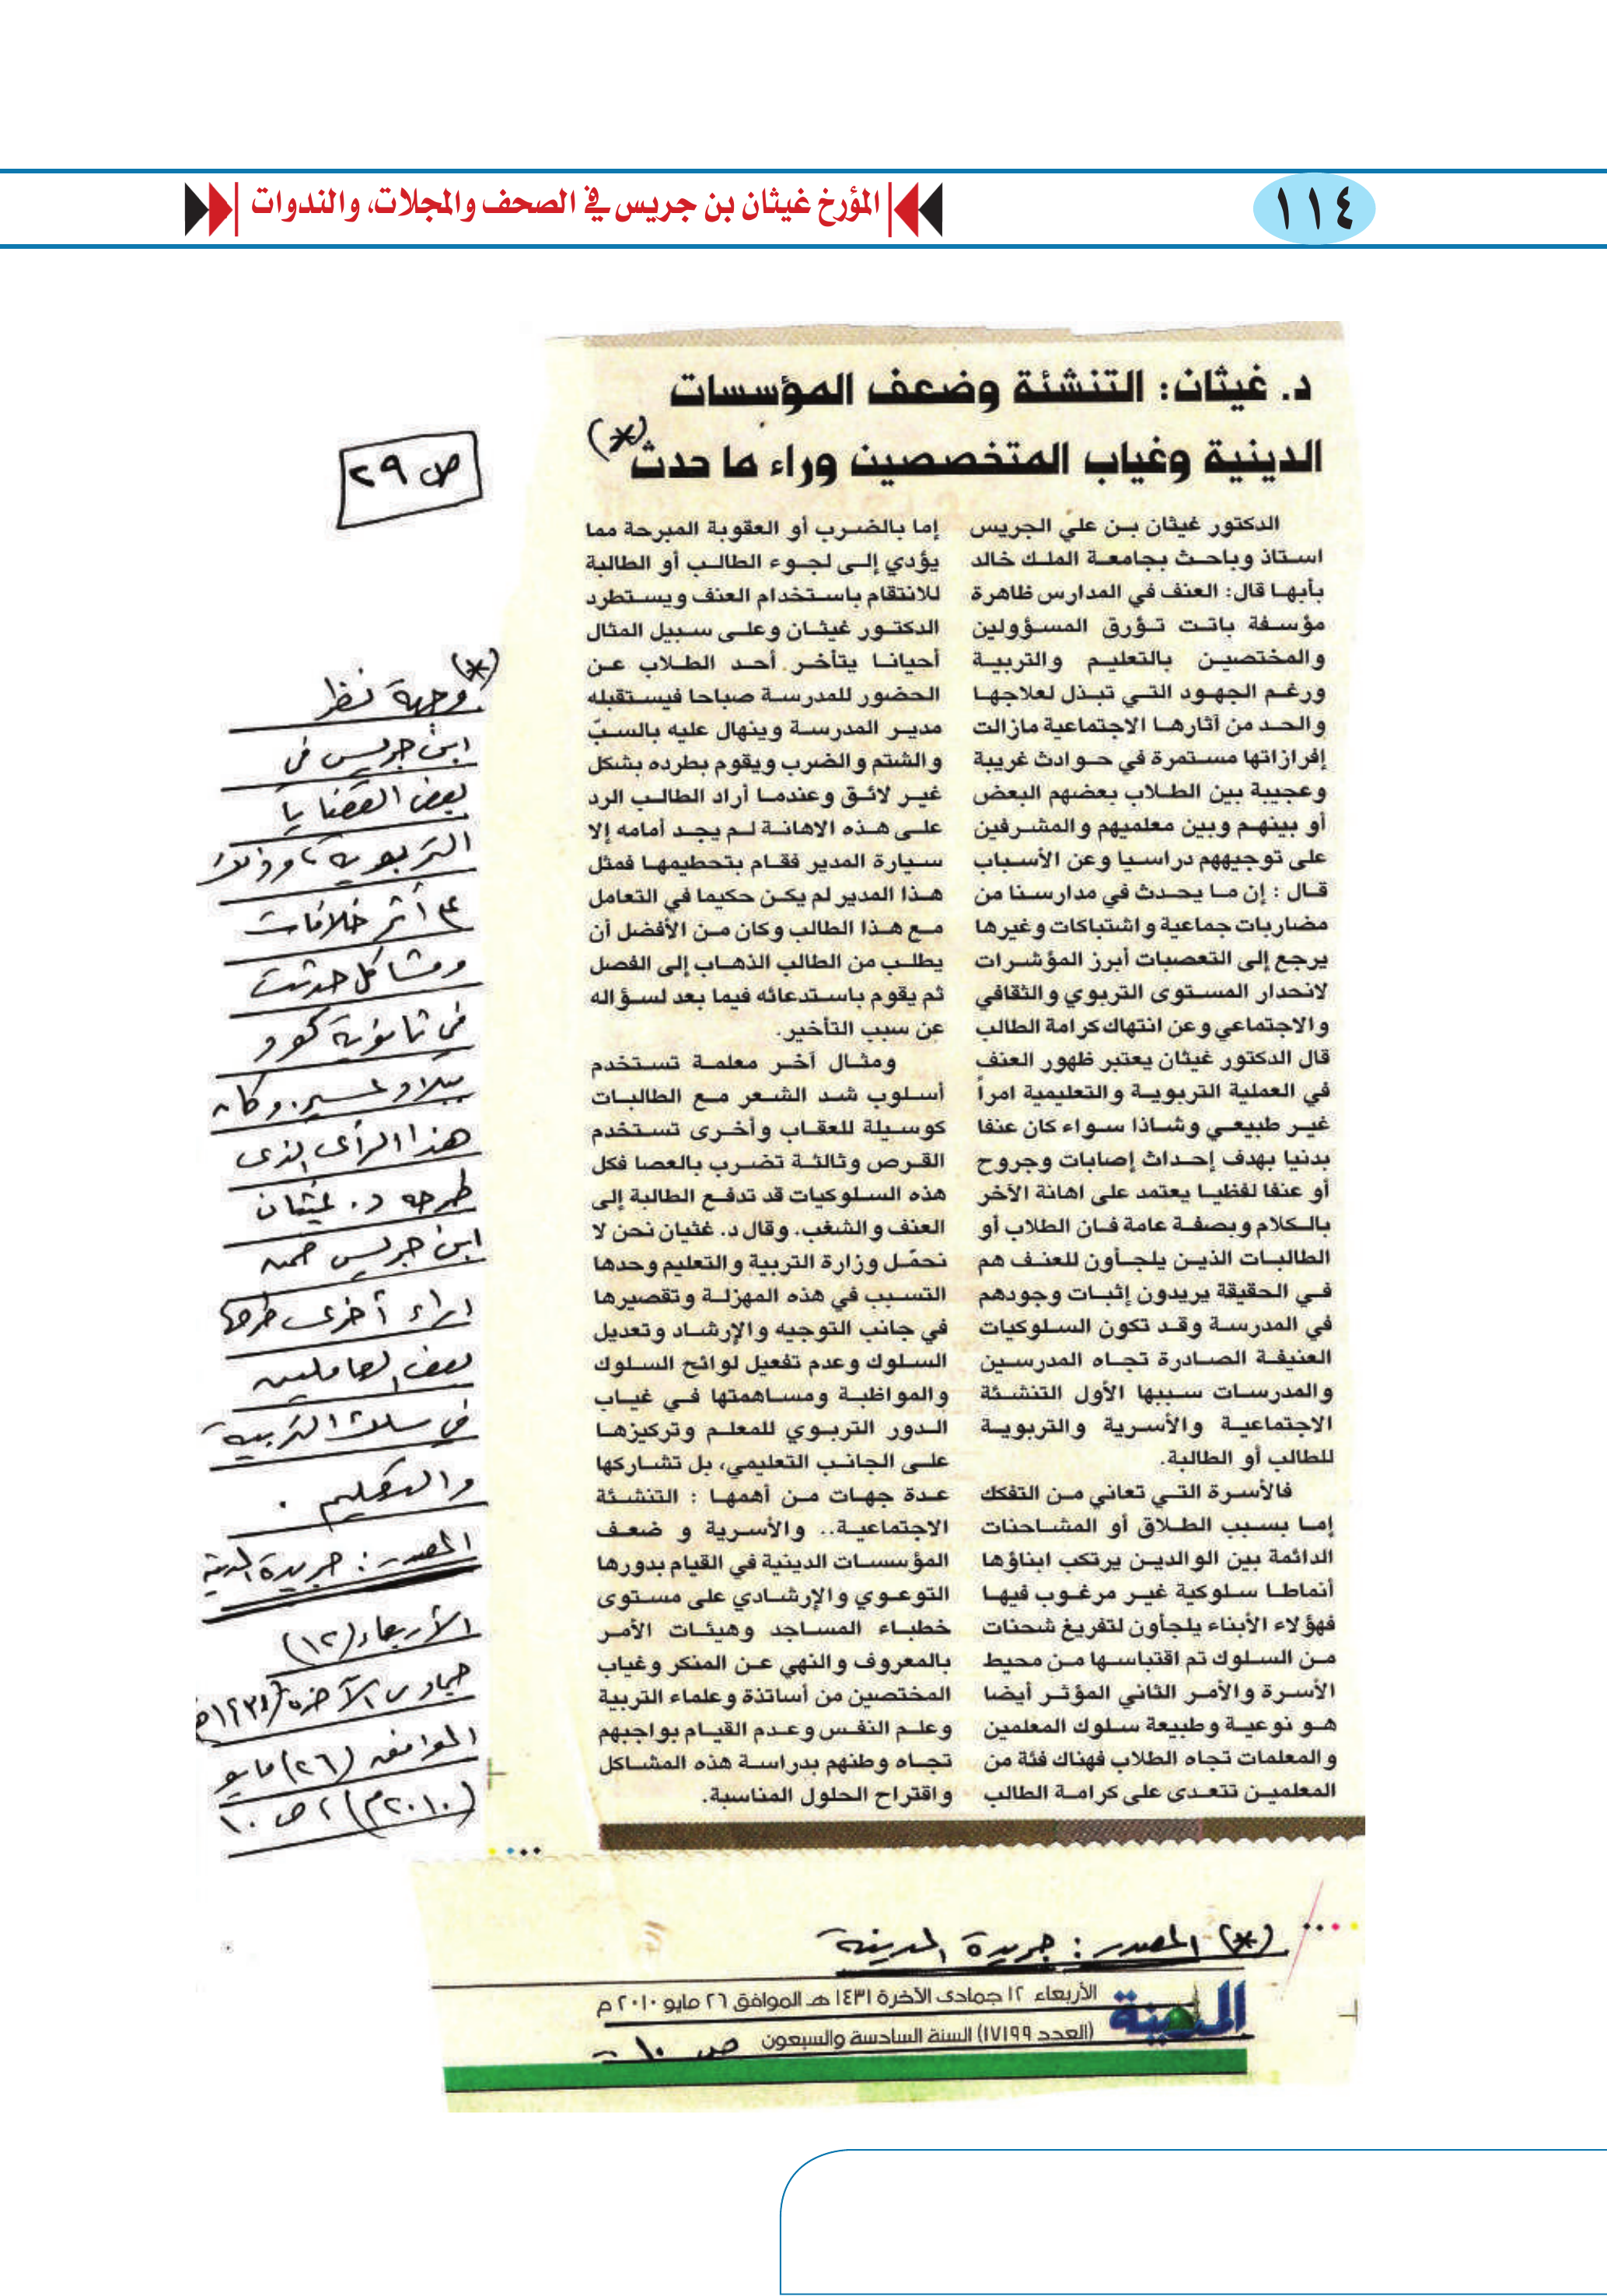 المؤرخ غيثان بن جريس في الصحف والمجلات، والندوات
١١٤
د. غيثان: التنشئة وضعف المؤسسات
الدينية وغياب المتخصصين وراء ما حدث (*)
الدكتور غيثان بن علي الجريس
استاذ وباحث بجامعة الملك خالد
بأبها قال: العنف في المدارس ظاهرة
مؤسفة باتت تؤرق المسؤولين
والمختصين بالتعليم والتربية
ورغم الجهود التي تبذل لعلاجها
والحد من آثارها الاجتماعية مازالت
إفرازاتها مستمرة في حوادث غريبة
وعجيبة بين الطلاب بعضهم البعض
أو بينهم وبين معلميهم والمشرفين
على توجيههم دراسيا وعن الأسباب
قال : إن ما يحدث في مدارسنا من
مضاربات جماعية واشتباكات وغيرها
يرجع إلى التعصبات أبرز المؤشرات
لانحدار المستوى التربوي والثقافي
والاجتماعي وعن انتهاك كرامة الطالب
قال الدكتور غيثان يعتبر ظهور العنف
في العملية التربوية والتعليمية امراً
غير طبيعي وشاذا سواء كان عنفا
بدنيا بهدف إحداث إصابات وجروح
أو عنفا لفظيا يعتمد على اهانة الآخر
بالكلام وبصفة عامة فان الطلاب أو
الطالبات الذين يلجأون للعنف هم
في الحقيقة يريدون إثبات وجودهم
في المدرسة وقد تكون السلوكيات
العنيفة الصادرة تجاه المدرسين
والمدرسات سببها الأول التنشئة
الاجتماعية والأسرية والتربوية
للطالب أو الطالبة.
فالأسرة التي تعاني من التفكك
إما بسبب الطلاق أو المشاحنات
الدائمة بين الوالدين يرتكب ابناؤها
أنماطا سلوكية غير مرغوب فيها
فهؤلاء الأبناء يلجأون لتفريغ شحنات
من السلوك تم اقتباسها من محيط
الأسرة والأمر الثاني المؤثر أيضا
هو نوعية وطبيعة سلوك المعلمين
والمعلمات تجاه الطلاب فهناك فئة من
المعلمين تتعدى على كرامة الطالب
إما بالضرب أو العقوبة المبرحة مما
يؤدي إلى لجوء الطالب أو الطالبة
للانتقام باستخدام العنف ويستطرد
الدكتور غيثان وعلى سبيل المثال
أحيانا يتأخر أحد الطلاب عن
الحضور للمدرسة صباحا فيستقبله
مدير المدرسة وينهال عليه بالسبّ
والشتم والضرب ويقوم بطرده بشكل
غير لائق وعندما أراد الطالب الرد
على هذه الاهانة لم يجد أمامه إلا
سيارة المدير فقام بتحطيمها فمثل
هذا المدير لم يكن حكيما في التعامل
مع هذا الطالب وكان من الأفضل أن
يطلب من الطالب الذهاب إلى الفصل
ثم يقوم باستدعائه فيما بعد لسؤاله
عن سبب التأخير.
ومثال آخر معلمة تستخدم
أسلوب شد الشعر مع الطالبات
كوسيلة للعقاب وأخرى تستخدم
القرص وثالثة تضرب بالعصا فكل
هذه السلوكيات قد تدفع الطالبة إلى
العنف والشغب. وقال د. غثيان نحن لا
نحمّل وزارة التربية والتعليم وحدها
التسبب في هذه المهزلة وتقصيرها
في جانب التوجيه والإرشاد وتعديل
السلوك وعدم تفعيل لوائح السلوك
والمواظبة ومساهمتها في غياب
الدور التربوي للمعلم وتركيزها
على الجانب التعليمي، بل تشاركها
عدة جهات من أهمها : التنشئة
الاجتماعية.. والأسرية و ضعف
المؤسسات الدينية في القيام بدورها
التوعوي والإرشادي على مستوى
خطباء المساجد وهيئات الأمر
بالمعروف والنهي عن المنكر وغياب
المختصين من أساتذة وعلماء التربية
وعلم النفس وعدم القيام بواجبهم
تجاه وطنهم بدراسة هذه المشاكل
واقتراح الحلول المناسبة.
ص ٢٩
(*) وجهة نظر
ابن جريس في
بعض القضايا
التربوية، وذلك
أثر خلافات
ومشاكل حدثت
في ثانوية
ببلاد عسير، وكان
هذا الرأي الذي
طرحه د. غيثان
ابن جريس ضمن
آراء أخرى طرحها
بعض العاملين
في سلك التربية
والتعليم .
المصدر : جريدة المدينة
الأربعاء (١٢)
جمادى الآخرة (١٤٣١هـ)
الموافق (٢٦) مايو
(٢٠١٠م) ، ص ١٠
(*) المصدر : جريدة المدينة
المدينة
الأربعاء ١٢ جمادى الآخرة ١٤٣١ هـ الموافق ٢٦ مايو ٢٠١٠ م
(العدد ١٧١٩٩) السنة السادسة والسبعون ص ١٠